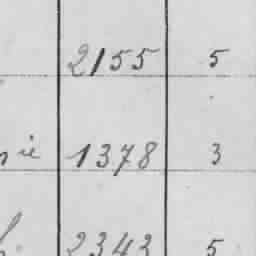 2155 5
1378 3
2343 5